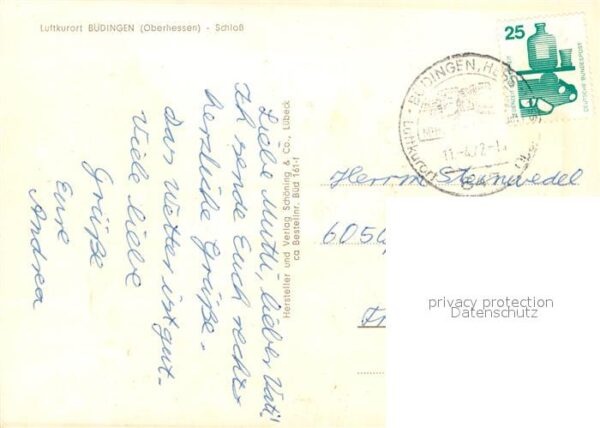 Luftkurort BÜDINGEN (Oberhessen) - Schloß
Liebe Mutti, lieber Vati!
Ich sende Euch recht
herzliche Grüße.
Das Wetter ist gut.
Viele liebe
Grüße
Eure
Andrea
Hersteller und Verlag Schöning & Co., Lübeck
ca Bestellnr. Büd 161-1
25
DEUTSCHE BUNDESPOST
BÜDINGEN, HESS
Luftkurort
11.-4.72-1
Herrn Steinwedel
605
privacy protection
Datenschutz